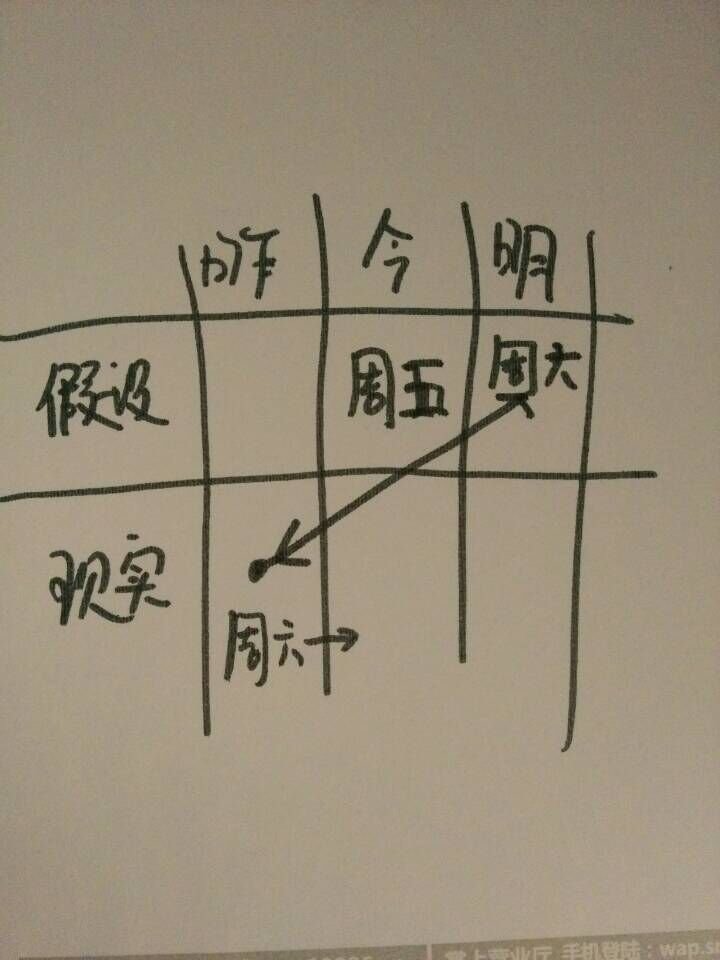 昨 今 明
假设 周五 周六
现实
周六→
掌上营业厅 手机登陆：wap.s